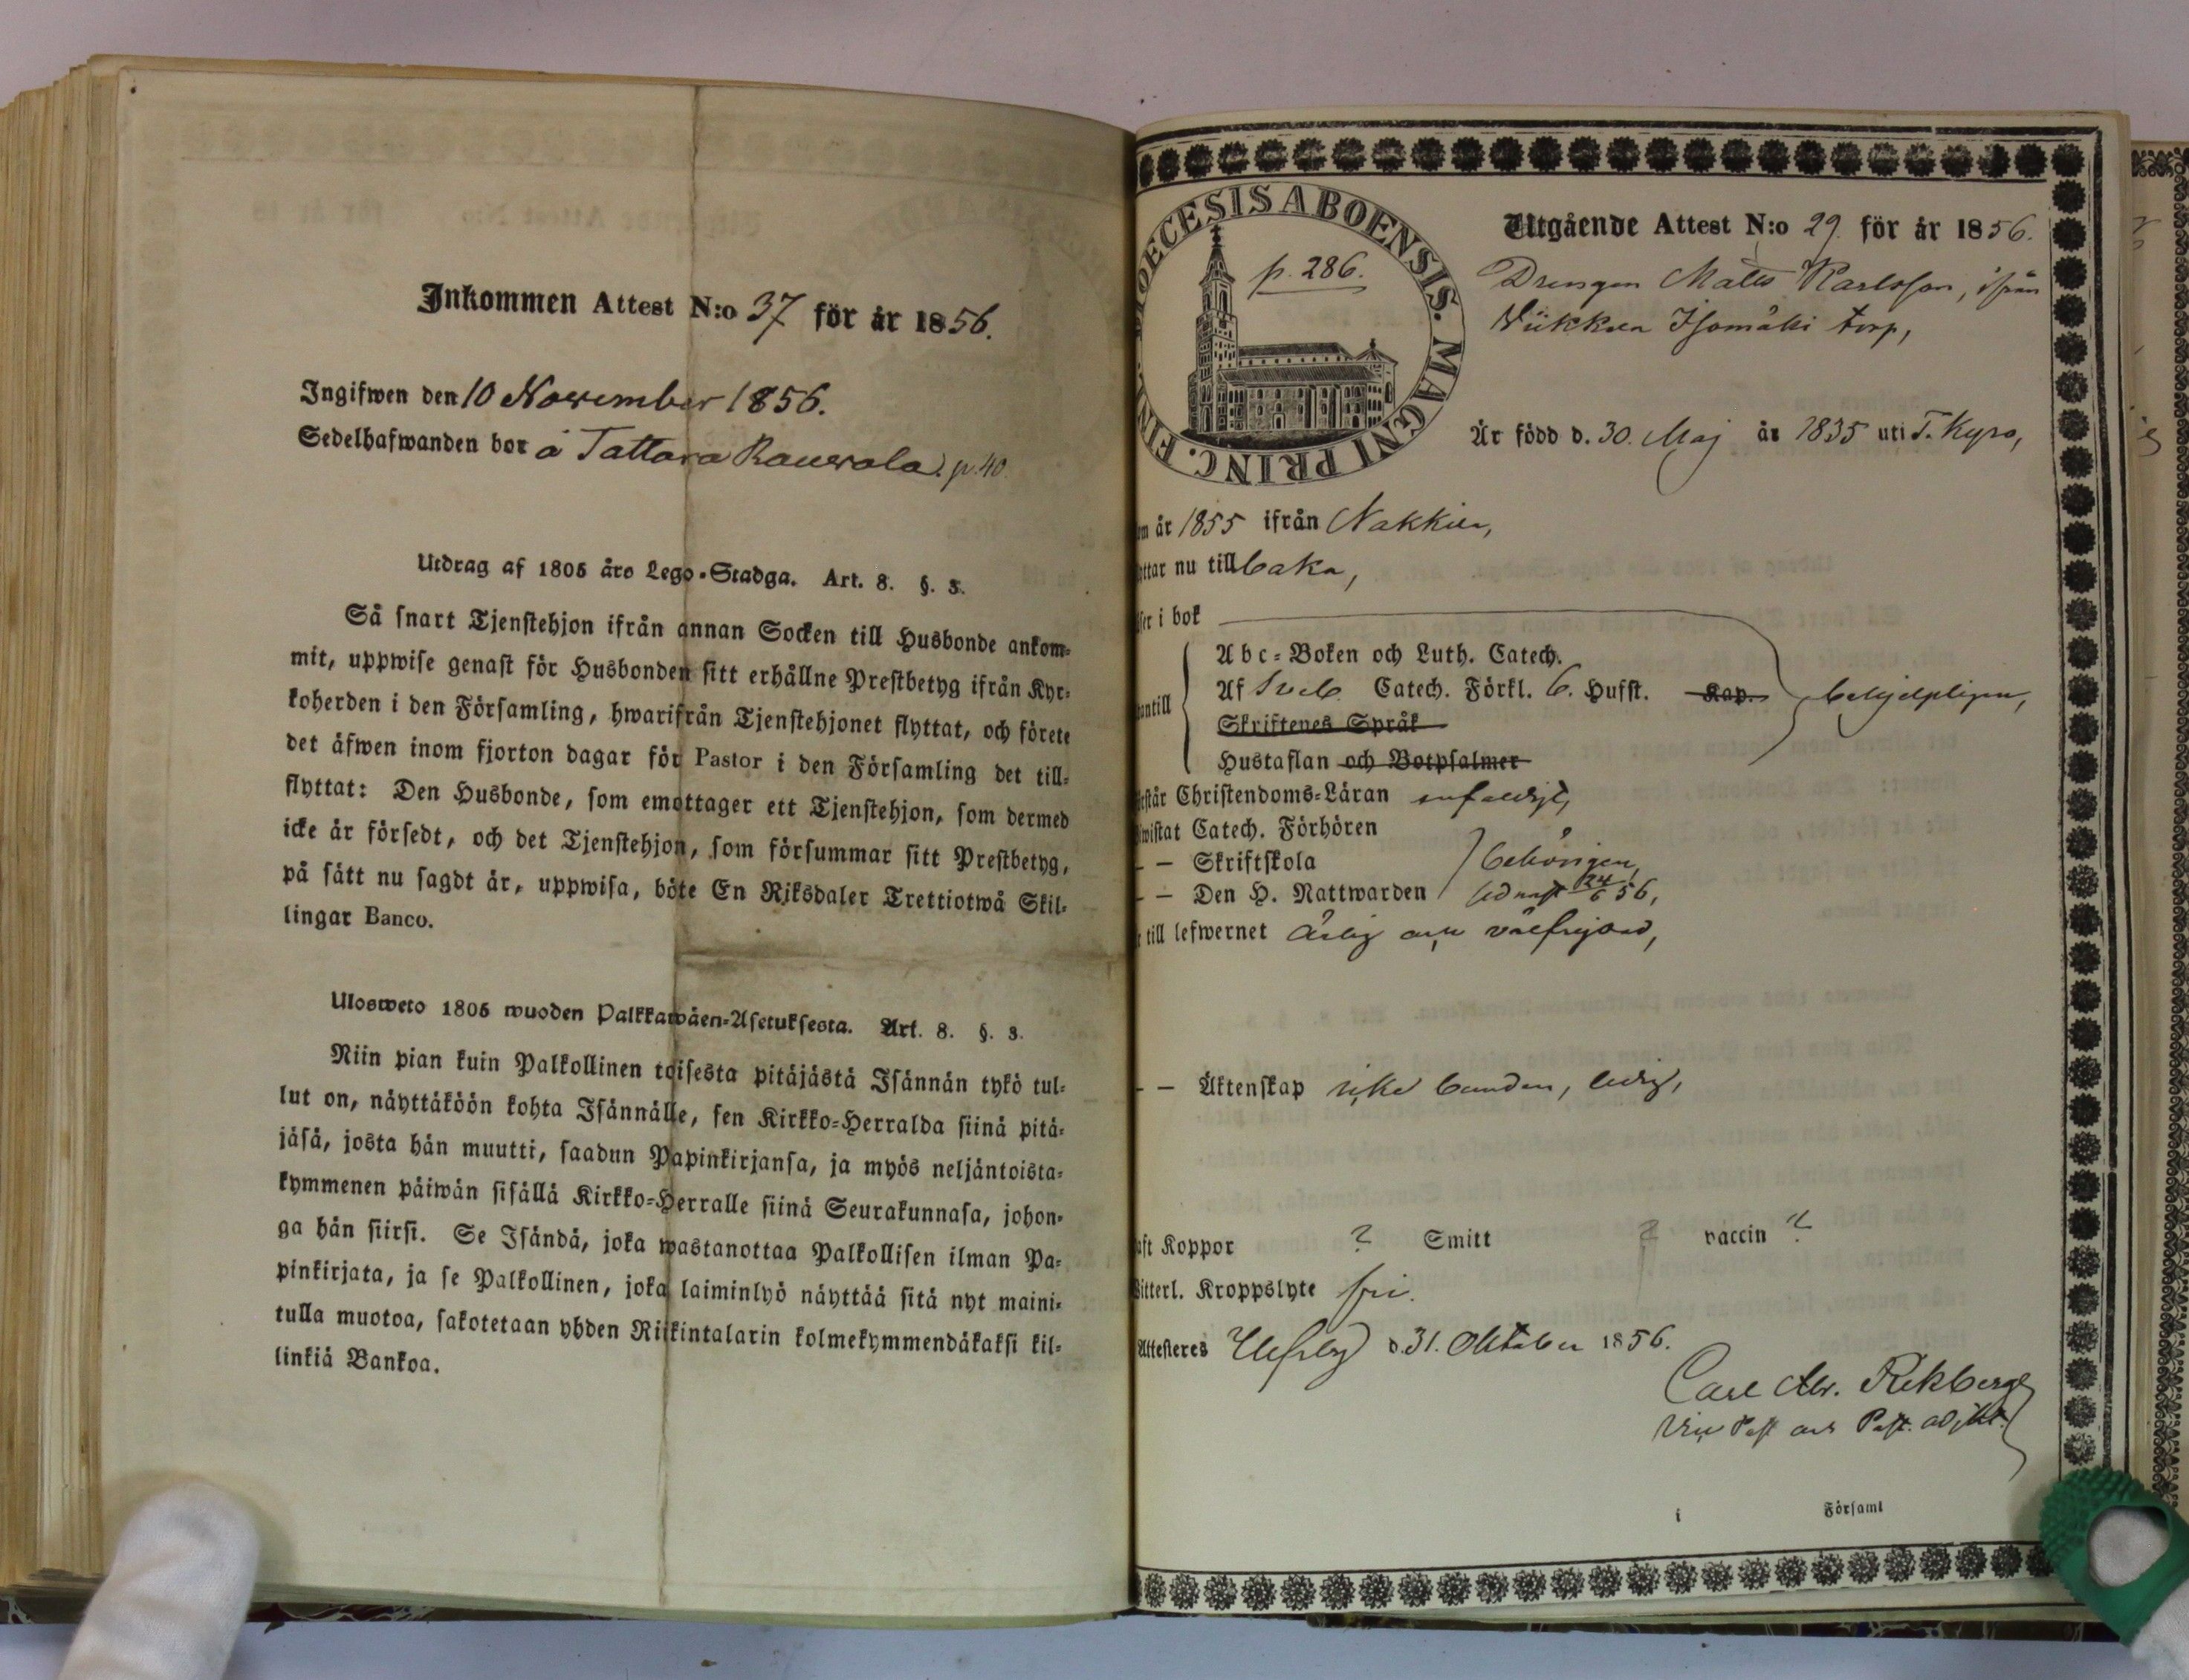 Inkommen Attest N:o 37 för år 1856.
Ingifwen den 10 November 1856.
Sedelhafwanden bor å Tattara Rauwola. p. 40.
Utdrag af 1805 års Lego-Stadga. Art. 8. §. 3.
Så snart Tjenstehjon ifrån annan Socken till Husbonde ankom-
mit, uppwise genast för Husbonden sitt erhållne Prestbetyg ifrån Kyr-
koherden i den Församling, hwarifrån Tjenstehjonet flyttat, och förete
det äfwen inom fjorton dagar för Pastor i den Församling det till-
flyttat: Den Husbonde, som emottager ett Tjenstehjon, som dermed
icke är försedt, och det Tjenstehjon, som försummar sitt Prestbetyg,
på sätt nu sagdt är, uppwisa, böte En Riksdaler Trettiotwå Skil-
lingar Banco.
Ulosweto 1805 wuoden Palkkawäen-Asetuksesta. Art. 8. §. 3.
Niin pian kuin Palkollinen toisesta pitäjästä Isännän tykö tul-
lut on, näyttäköön kohta Isännälle, sen Kirkko-Herralda siinä pitä-
jäsä, josta hän muutti, saadun Papinkirjansa, ja myös neljäntoista-
kymmenen päiwän sisällä Kirkko-Herralle siinä Seurakunnasa, johon-
ga hän siirsi. Se Isändä, joka wastanottaa Palkollisen ilman Pa-
pinkirjata, ja se Palkollinen, joka laiminlyö näyttää sitä nyt maini-
tulla muotoa, sakotetaan yhden Riikintalarin kolmekymmendäkaksi kil-
linkiä Bankoa.
DIOECESIS ABOENSIS. MAGNI PRINC. FINL.
p. 286.
Utgående Attest N:o 29. för år 1856.
Drengen Matts Karlsson, ifrån
Isomäki torp,
Är född d. 30. Maj år 1835 uti T. Kyro,
om år 1855 ifrån Nakkila,
ttar nu tillbaka,
ser i bok
Abc-Boken och Luth. Catech.
Af Sveb. Catech. Förkl. 6. Hufst. Kap.
antill
behjelpligen,
Skriftenes Språk
Hustaflan och Botpsalmer
står Christendoms-Läran enfaldigt,
wistat Catech. Förhören
– – Skriftskola
behörigen,
– – Den H. Nattwarden sednast 24/6 56,
till lefwernet ärlig och välfrejdad,
– – Äktenskap icke bunden, ledig,
aft Koppor ? Smitt ? vaccin ?
itterl. Kroppslyte fri.
Attesteres Ulfsby d. 31. Oktober 1856.
Carl Rekberg
Vice Past. och Past. adjkt.
i Församl